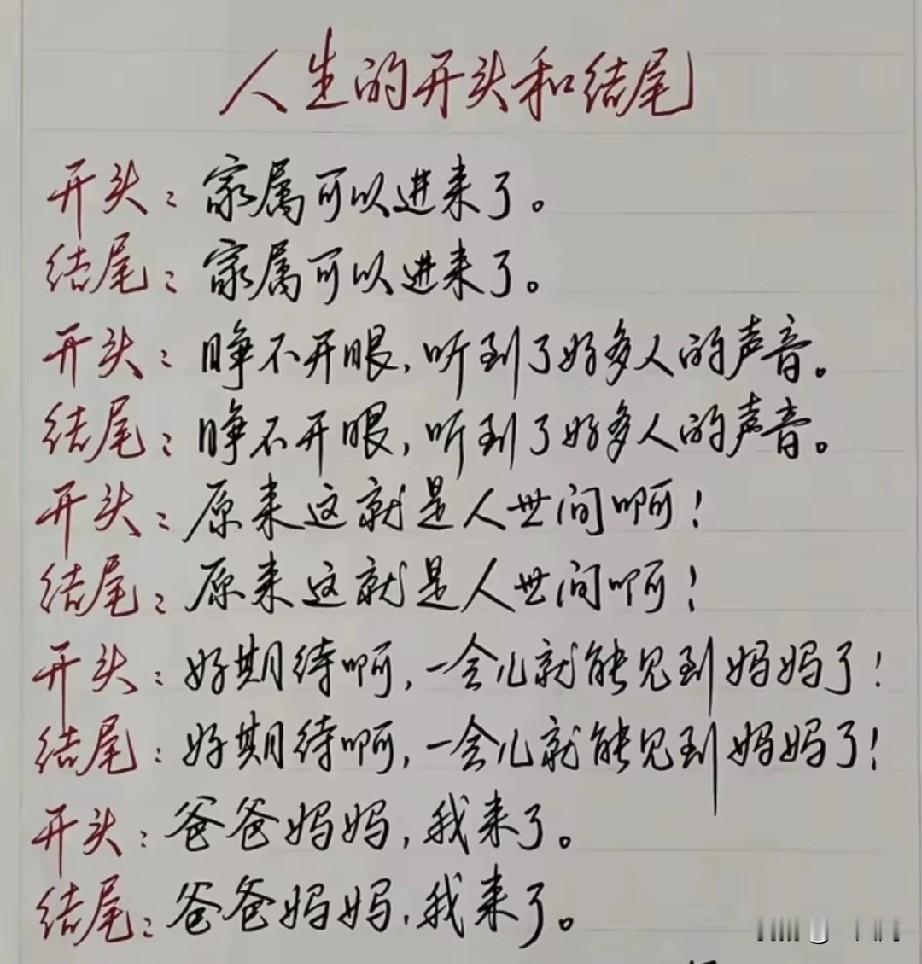 人生的开头和结尾
开头：家属可以进来了。
结尾：家属可以进来了。
开头：睁不开眼，听到了好多人的声音。
结尾：睁不开眼，听到了好多人的声音。
开头：原来这就是人世间啊！
结尾：原来这就是人世间啊！
开头：好期待啊，一会儿就能见到妈妈了！
结尾：好期待啊，一会儿就能见到妈妈了！
开头：爸爸妈妈，我来了。
结尾：爸爸妈妈，我来了。